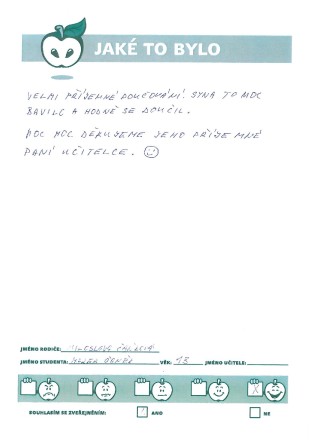 JAKÉ TO BYLO
VELMI PŘÍJEMNÉ DOUČOVÁNÍ. SYNA TO MOC
BAVILO A HODNĚ SE DOUČIL.
MOC MOC DĚKUJEME JEHO PŘÍJEMNÉ
PANÍ UČITELCE.
JMÉNO RODIČE: MIROSLAVA
JMÉNO STUDENTA: VĚK: 13 JMÉNO UČITELE:
SOUHLASÍM SE ZVEŘEJNĚNÍM: ANO NE